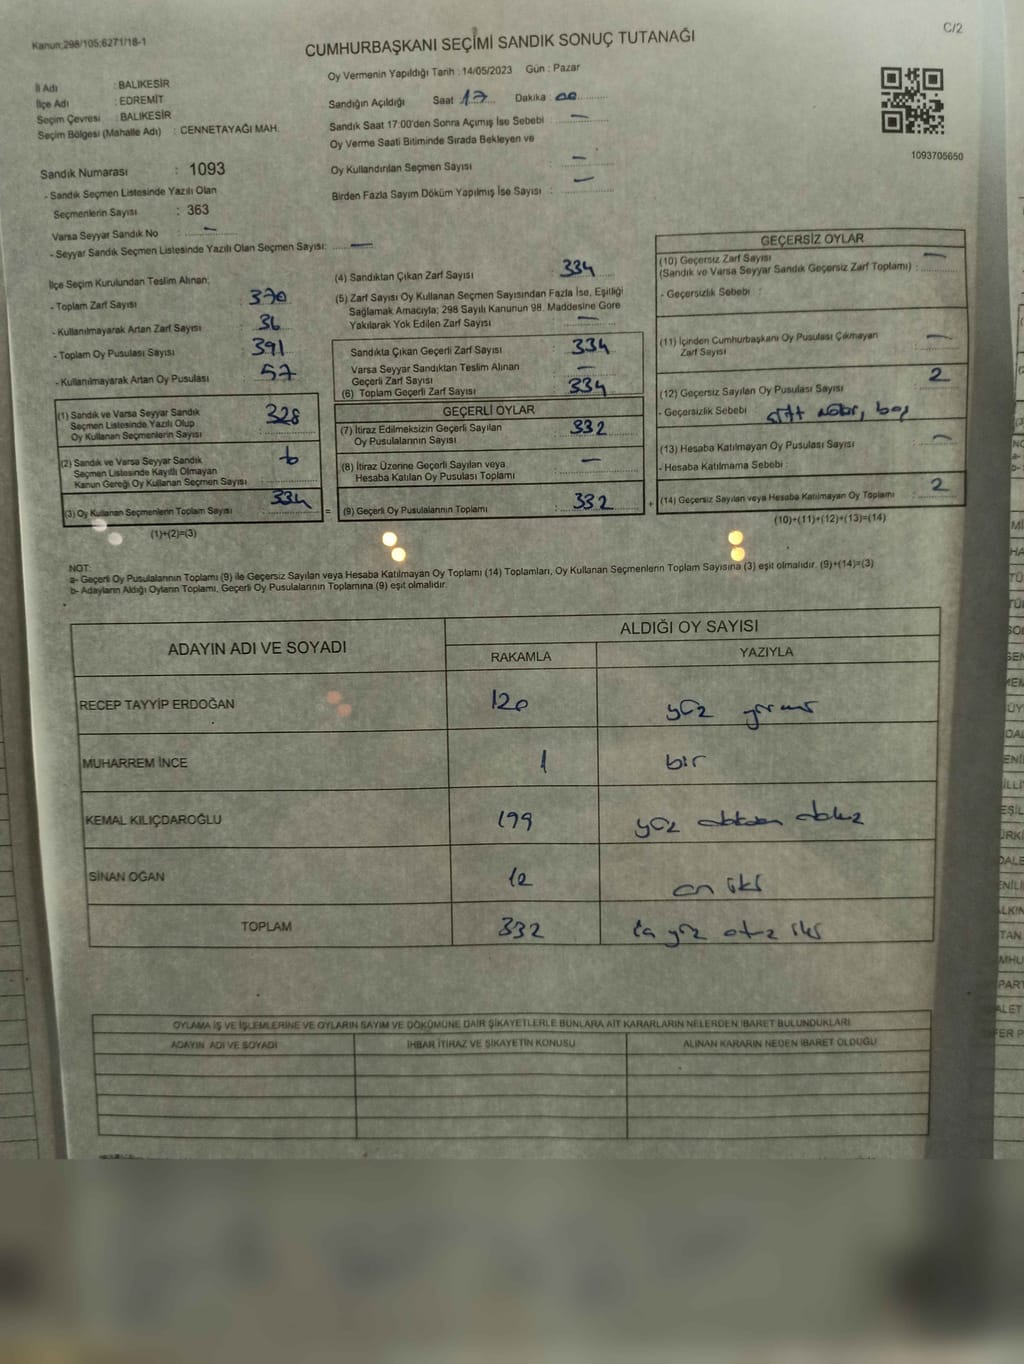 Kanun;298/105;6271/18-1
C/2
CUMHURBAŞKANI SEÇİMİ SANDIK SONUÇ TUTANAĞI
İl Adı : BALIKESİR
İlçe Adı : EDREMİT
Seçim Çevresi : BALIKESİR
Seçim Bölgesi (Mahalle Adı) : CENNETAYAĞI MAH.
Oy Vermenin Yapıldığı Tarih : 14/05/2023 Gün : Pazar
Sandığın Açıldığı Saat 17 Dakika : 00
Sandık Saat 17:00'den Sonra Açımış İse Sebebi : —
Oy Verme Saati Bitiminde Sırada Bekleyen ve
Oy Kullandırılan Seçmen Sayısı : —
Birden Fazla Sayım Döküm Yapılmış İse Sayısı : —
1093705650
Sandık Numarası : 1093
- Sandık Seçmen Listesinde Yazılı Olan
Seçmenlerin Sayısı : 363
Varsa Seyyar Sandık No : —
- Seyyar Sandık Seçmen Listesinde Yazılı Olan Seçmen Sayısı: —
İlçe Seçim Kurulundan Teslim Alınan;
- Toplam Zarf Sayısı : 370
- Kullanılmayarak Artan Zarf Sayısı : 36
- Toplam Oy Pusulası Sayısı : 391
- Kullanılmayarak Artan Oy Pusulası : 57
(1) Sandık ve Varsa Seyyar Sandık
Seçmen Listesinde Yazılı Olup
Oy Kullanan Seçmenlerin Sayısı : 328
(2) Sandık ve Varsa Seyyar Sandık
Seçmen Listesinde Kayıtlı Olmayan
Kanun Gereği Oy Kullanan Seçmen Sayısı : 6
(3) Oy Kullanan Seçmenlerin Toplam Sayısı : 334
(1)+(2)=(3)
(4) Sandıktan Çıkan Zarf Sayısı : 334
(5) Zarf Sayısı Oy Kullanan Seçmen Sayısından Fazla İse, Eşitliği
Sağlamak Amacıyla; 298 Sayılı Kanunun 98. Maddesine Göre
Yakılarak Yok Edilen Zarf Sayısı : —
Sandıkta Çıkan Geçerli Zarf Sayısı : 334
Varsa Seyyar Sandıktan Teslim Alınan
Geçerli Zarf Sayısı : —
(6) Toplam Geçerli Zarf Sayısı : 334
GEÇERLİ OYLAR
(7) İtiraz Edilmeksizin Geçerli Sayılan
Oy Pusulalarının Sayısı : 332
(8) İtiraz Üzerine Geçerli Sayılan veya
Hesaba Katılan Oy Pusulası Toplamı : —
(9) Geçerli Oy Pusulalarının Toplamı : 332
GEÇERSİZ OYLAR
(10) Geçersiz Zarf Sayısı
(Sandık ve Varsa Seyyar Sandık Geçersiz Zarf Toplamı) : —
- Geçersizlik Sebebi :
(11) İçinden Cumhurbaşkanı Oy Pusulası Çıkmayan
Zarf Sayısı : —
(12) Geçersiz Sayılan Oy Pusulası Sayısı : 2
- Geçersizlik Sebebi : boş
(13) Hesaba Katılmayan Oy Pusulası Sayısı : —
- Hesaba Katılmama Sebebi :
(14) Geçersiz Sayılan veya Hesaba Katılmayan Oy Toplamı : 2
(10)+(11)+(12)+(13)=(14)
NOT:
a- Geçerli Oy Pusulalarının Toplamı (9) ile Geçersiz Sayılan veya Hesaba Katılmayan Oy Toplamı (14) Toplamları, Oy Kullanan Seçmenlerin Toplam Sayısına (3) eşit olmalıdır. (9)+(14)=(3)
b- Adayların Aldığı Oyların Toplamı, Geçerli Oy Pusulalarının Toplamına (9) eşit olmalıdır.
ADAYIN ADI VE SOYADI ALDIĞI OY SAYISI
RAKAMLA YAZIYLA
RECEP TAYYİP ERDOĞAN 120 yüz yirmi
MUHARREM İNCE 1 bir
KEMAL KILIÇDAROĞLU 199 yüz doksan dokuz
SİNAN OĞAN 12 on iki
TOPLAM 332 üç yüz otuz iki
OYLAMA İŞ VE İŞLEMLERİNE VE OYLARIN SAYIM VE DÖKÜMÜNE DAİR ŞİKAYETLERLE BUNLARA AİT KARARLARIN NELERDEN İBARET BULUNDUKLARI
ADAYIN ADI VE SOYADI İHBAR İTİRAZ VE ŞİKAYETİN KONUSU ALINAN KARARIN NEDEN İBARET OLDUĞU